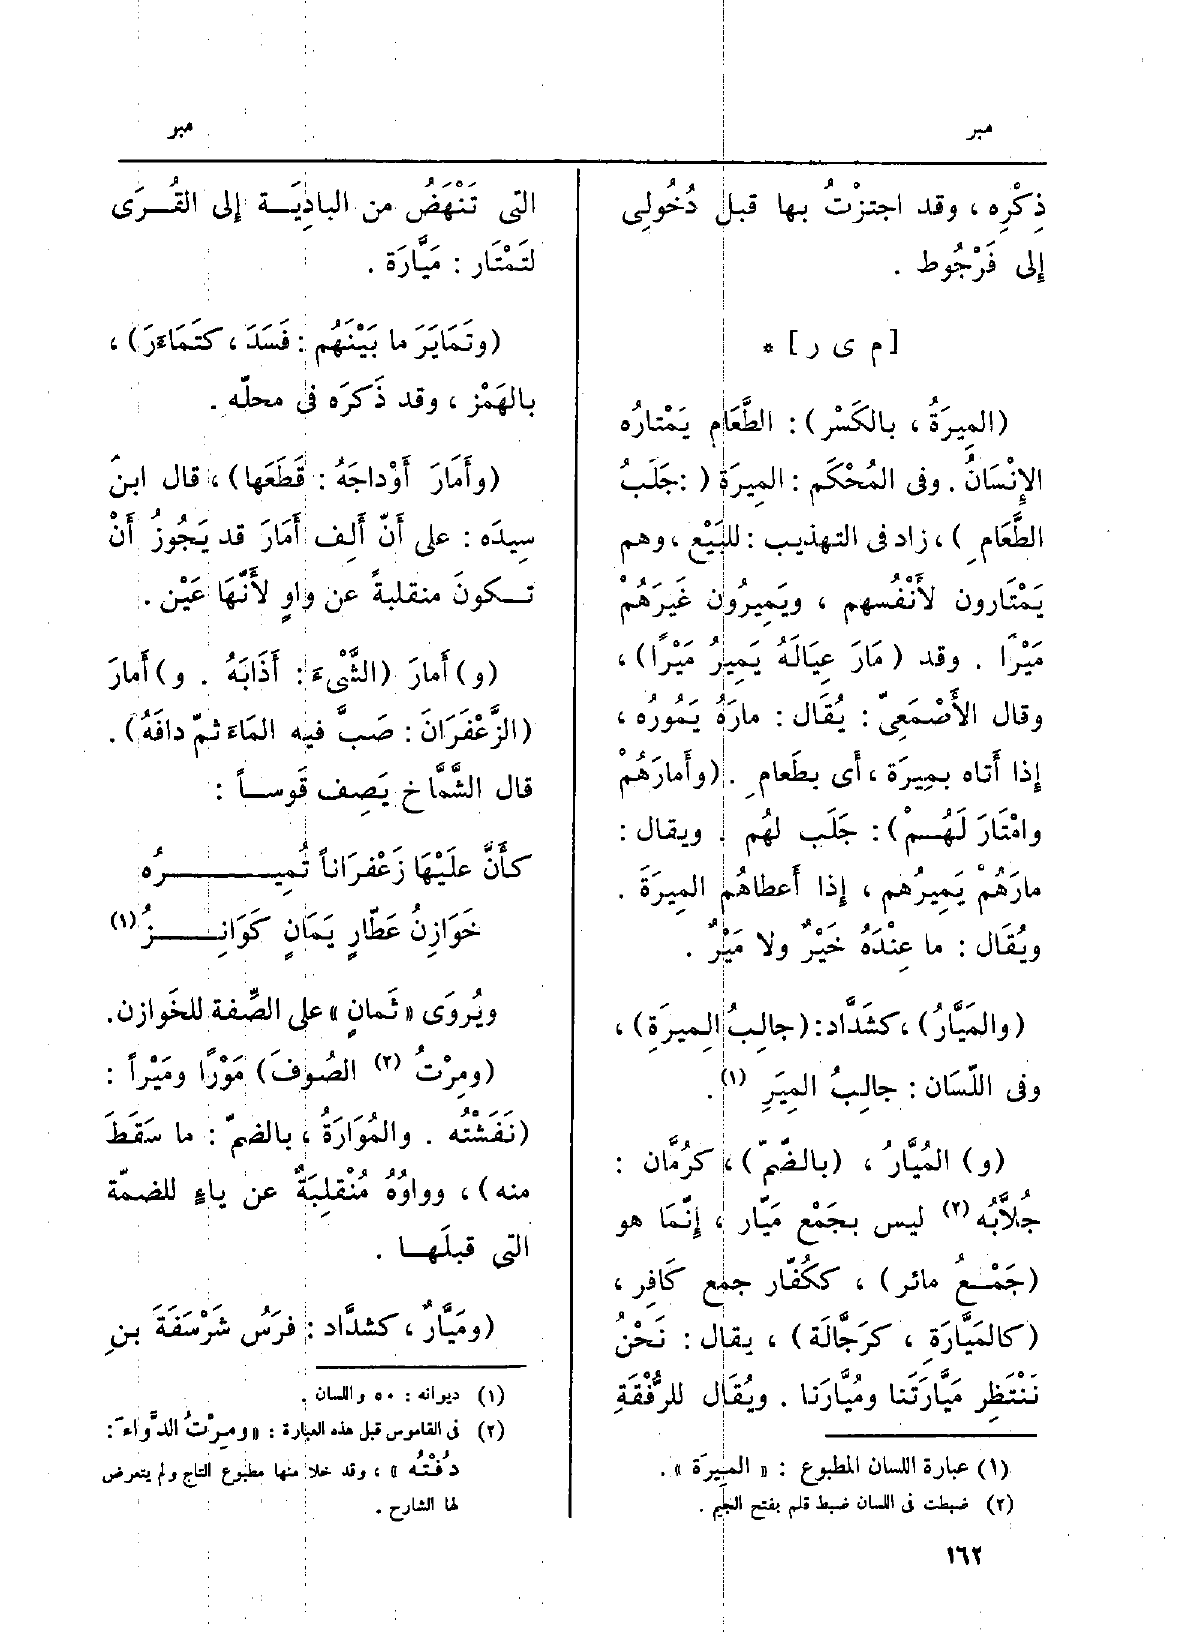 مير
مير
ذِكْرِه ، وقد اجتزْتُ بها قبل دُخُولِى
إلى فَرْجُوط .
[ م ى ر ] *
(المِيرَةُ ، بالكَسْر) : الطَّعَام يَمْتارُه
الإنْسَانُ . وفى المُحْكَم : المِيرَة ( : جَلَبُ
الطَّعَامِ ) ، زاد فى التهذيب : للبَيْع ، وهم
يَمْتَارون لأَنْفُسهم ، ويَمِيرُون غَيرَهُمْ
مَيْرًا . وقد (مَارَ عِيَالَهُ يَمِيرُ مَيْرًا) ،
وقال الأَصْمَعِىّ : يُقَال : مارَهُ يَمُورُه ،
إذا أَتاه بمِيرَة ، أَى بطَعامٍ . (وأَمارَهُمْ
وامْتَارَ لَهُمْ) : جَلَب لهُم . ويقال :
مارَهُمْ يَمِيرُهم ، إذا أَعطاهُم المِيرَةَ .
ويُقَال : ما عِنْدَهُ خَيْرٌ ولا مَيْرٌ .
(والمَيَّارُ) ، كشَدَّاد : (جالِبُ المِيرَةِ) ،
وفى اللّسَان : جالِبُ المِيَرِ (١) .
(و) المُيَّارُ ، (بالضّمّ) ، كرُمَّان :
جُلاَّبُه (٢) ليس بجَمْع مَيّار ، إنَّمَا هو
(جَمْعُ مائر) ، ككُفّار جمْع كَافِر ،
(كالمَيَّارَةِ ، كرَجَّالَة) ، يقال : نَحْنُ
نَنْتَظِر مَيَّارَتَنا ومُيَّارَنا . ويُقَال للرُّفْقَةِ
(١) عبارة اللسان المطبوع : « المِيرَة » .
(٢) ضبطت فى اللسان ضبط قلم بفتح الجيم .
١٦٢
التى تَنْهَضُ من البادِيَة إلى القُرَى
لتَمْتَار : مَيَّارَة .
(وتَمَايَرَ ما بَيْنَهُم : فَسَدَ ، كتَمَاءَرَ) ،
بالهَمْز ، وقد ذَكرَه فى محلّه .
(وأَمَارَ أَوْداجَهُ : قَطَعَها) ، قال ابنُ
سِيدَه : على أَنّ أَلِف أَمَارَ قد يَجُوزُ أَنْ
تكونَ منقلبةً عن واوٍ لأَنَّهَا عَيْن .
(و) أَمارَ (الشَّىْءَ : أَذَابَهُ . و) أَمارَ
(الزَّعْفَرَانَ : صَبَّ فيه الماءَ ثمّ دافَهُ) .
قال الشَّمَّاخ يَصِف قَوساً :
كأَنَّ علَيْهَا زَعْفرَاناً تُمِيرُه
خَوَازِنُ عَطّارٍ يَمَانٍ كَوَانِزُ (١)
ويُروَى « ثَمانٍ » على الصِّفة للخَوازن .
(ومِرْتُ (٢) الصُوفَ) مَوْرًا ومَيْراً :
(نَفَشْتُه . والمُوَارَةُ ، بالضمّ : ما سَقَطَ
منه) ، وواوُهُ مُنْقلِبَةٌ عن ياءٍ للضمّة
التى قبلَها .
(ومَيَّارٌ ، كشدَّاد : فرَسُ شَرْسَفَةَ بنِ
(١) ديوانه : ٥٠ واللسان .
(٢) فى القاموس قبل هذه العبارة : « ومِرْتُ الدَّواءَ :
دُفْتُه » ، وقد خلا منها مطبوع التاج ولم يتعرض
لها الشارح .